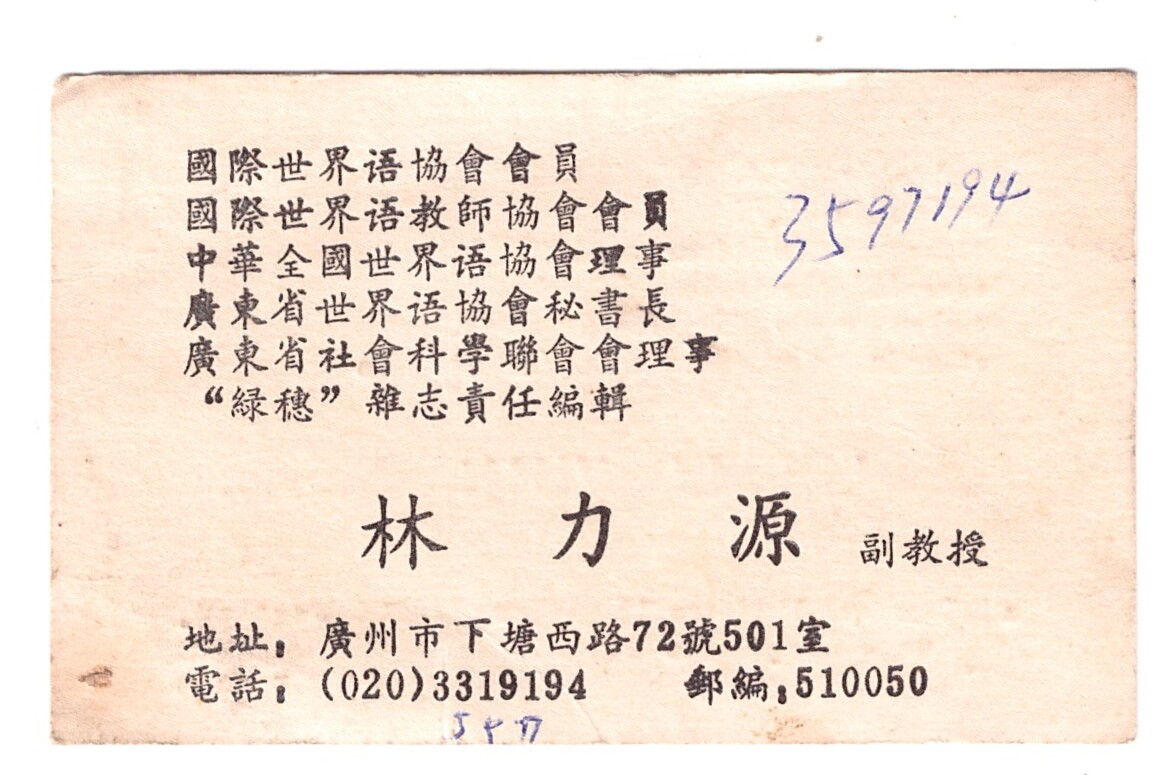 國際世界语協會會員
3597194
國際世界语教師協會會員
中華全國世界语協會理事
廣東省世界语協會秘書長
廣東省社會科學聯會會理事
“緑穗”雜志責任編輯
林力源 副教授
地址：廣州市下塘西路72號501室
電話：(020)3319194 郵編：510050